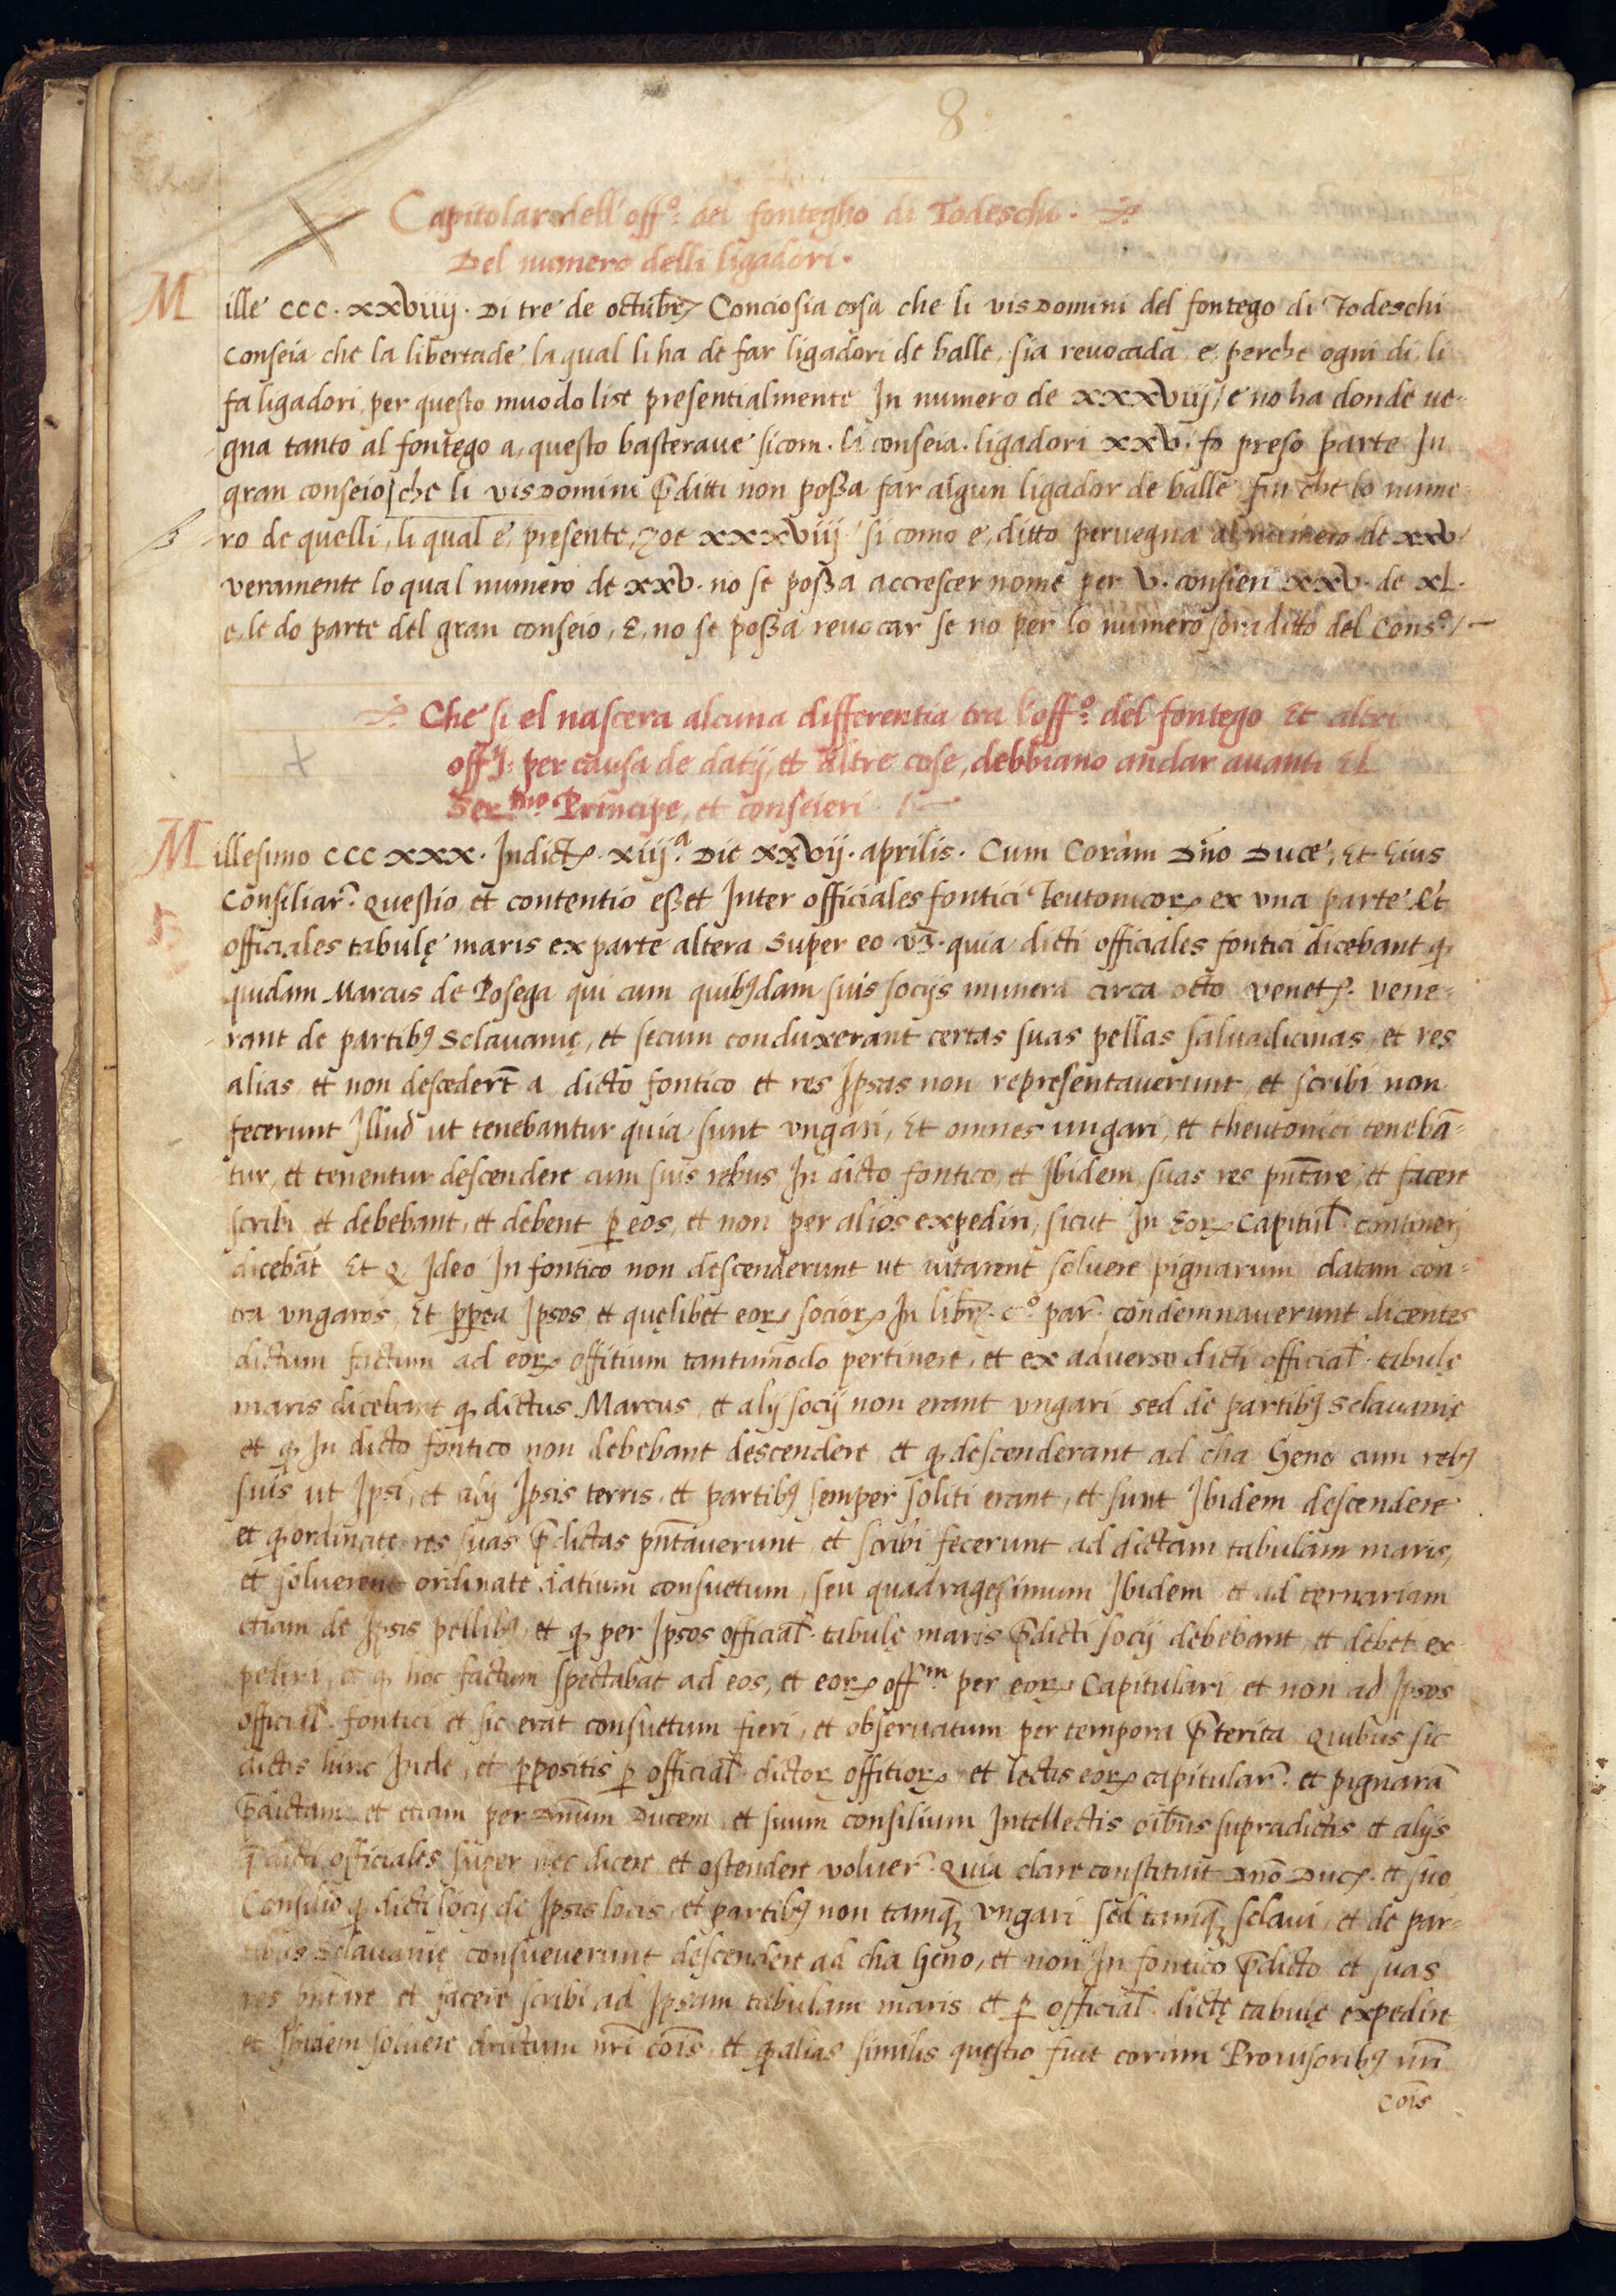 8
Capitolar dell'offº: del fontegho di Todeschi.
Del numero delli ligadori.
Mille ccc. xxviiij. Di tre de octubr̃ Conciosia cosa che li visDomini del fontego di Todeschi
conseia che la libertade, la qual li ha de far ligadori de balle, sia reuocada, e, perche ogni di, li
fa ligadori, per questo muodo li se presentialmente In numero de xxxviij, e no ha donde ue-
gna tanto al fontego a, questo basteraue sicom. li conseia. ligadori xxv. fo preso parte In
gran conseio che li visDomini p̃ditti non poßa far algun ligador de balle fin che lo nume-
ro de quelli, li qual è, presente, zoe xxxviij si como e, ditto peruegna al numero de xxv
veramente lo qual numero de xxv. no se poßa accrescer nome per v. consieri xxv. de xl.
e, le do parte del gran conseio, E, no se poßa reuocar se no per lo numero soraditto del Consº/
Che si el nascera alcuna differentia tra l'offº: del fontego Et altri
offij: per causa de datij, et altre cose, debbiano andar auanti El
Ser.mo Principe, et conseieri.
Millesimo ccc xxx. Indict̃. xiij.a Die xxvij. aprilis. Cum Coram Dño Duce, Et Eius
Consiliar̃. questio, et contentio eßet Inter officiales fontici Teutonicoꝝ ex vna parte Et
officiales tabulę maris ex parte altera super eo vꝫ. quia dicti officiales fontici dicebant ꝙ
quidam Marcus de Posega qui cum quibꝰdam suis socijs munera circa octo venet̃. vene-
rant de partibꝰ Sclauanię, et secum conduxerant certas suas pellas saluadicinas, et res
alias et non descedert̃ a dicto fontico et res Ipsas non representauerunt, et scribi non
fecerunt Illud ut tenebantur quia sunt vngari, Et omnes ungari, et theutonici tenebā-
tur, et tenentur descendere cum suis rebus In dicto fontico, et Ibidem, suas res pñtare, et facere
scribi, et debebant, et debent ꝑ eos, et non per alios expediri, sicut In Eoꝝ Capitul̃ contineri
dicebāt Et Q Ideo In fontico non descenderunt ut uitarent soluere pignarum datam con-
tra vngaros, Et ꝑꝑea Ipsos, et quęlibet eoꝝ socioꝝ In libr̃. cº. par̃. condemnauerunt dicentes
dictum factum ad eoꝝ offitium tantummodo pertinere, et ex aduerso dicti official̃. tabulę
maris dicebant ꝙ dictus Marcus, et alij socij non erant vngari sed de partibꝰ Sclauanię
et ꝙ In dicto fontico non debebant descendere et ꝙ descenderant ad cha Heno cum rebꝰ
suis ut Ipsi, et alij Ipsis terris, et partibꝰ semper soliti erant, et sunt Ibidem descendere
et ꝙ ordinate res suas p̃dictas pñtauerunt et scribi fecerunt ad dictam tabulam maris,
et soluerent ordinate datium consuetum, seu quadragesimum Ibidem et ad ternariam
etiam de Ipsis pellibꝰ, et ꝙ per Ipsos official̃. tabulę maris p̃dicti socij debebant, et debet ex-
pediri, et ꝙ hoc factum spectabat ad eos, et eoꝝ off.m per eoꝝ Capitulari et non ad Ipsos
official̃. fontici et sic erat consuetum fieri, et obseruatum per tempora p̃terita quibus sic
dictis hinc Inde, et ꝓpositis ꝑ official̃. dictoꝝ offitioꝝ et lectis eoꝝ capitular̃. et pignarā
p̃dictam et etiam per Dñum Ducem, et suum consilium Intellectis oĩbus supradictis et alijs
officiales super hec dicere et ostendere voluer̃. Quia clare constituit Dño Duc̃. et suo
Consilio ꝙ dicti socij de Ipsis locis, et partibꝰ non tamqꝫ vngari sed tamqꝫ sclaui, et de par-
tibus Sclauanię consueuerunt descendere ad cha Heno, et non In fontico p̃dicto et suas
res pñtare et facere scribi ad Ipsam tabulam maris et ꝑ official̃. dictę tabulę expedire
et Ibidem soluere drictum nr̃i cõis et ꝙ alias similis questio fuit coram Prouisoribꝰ nr̃i
cõis